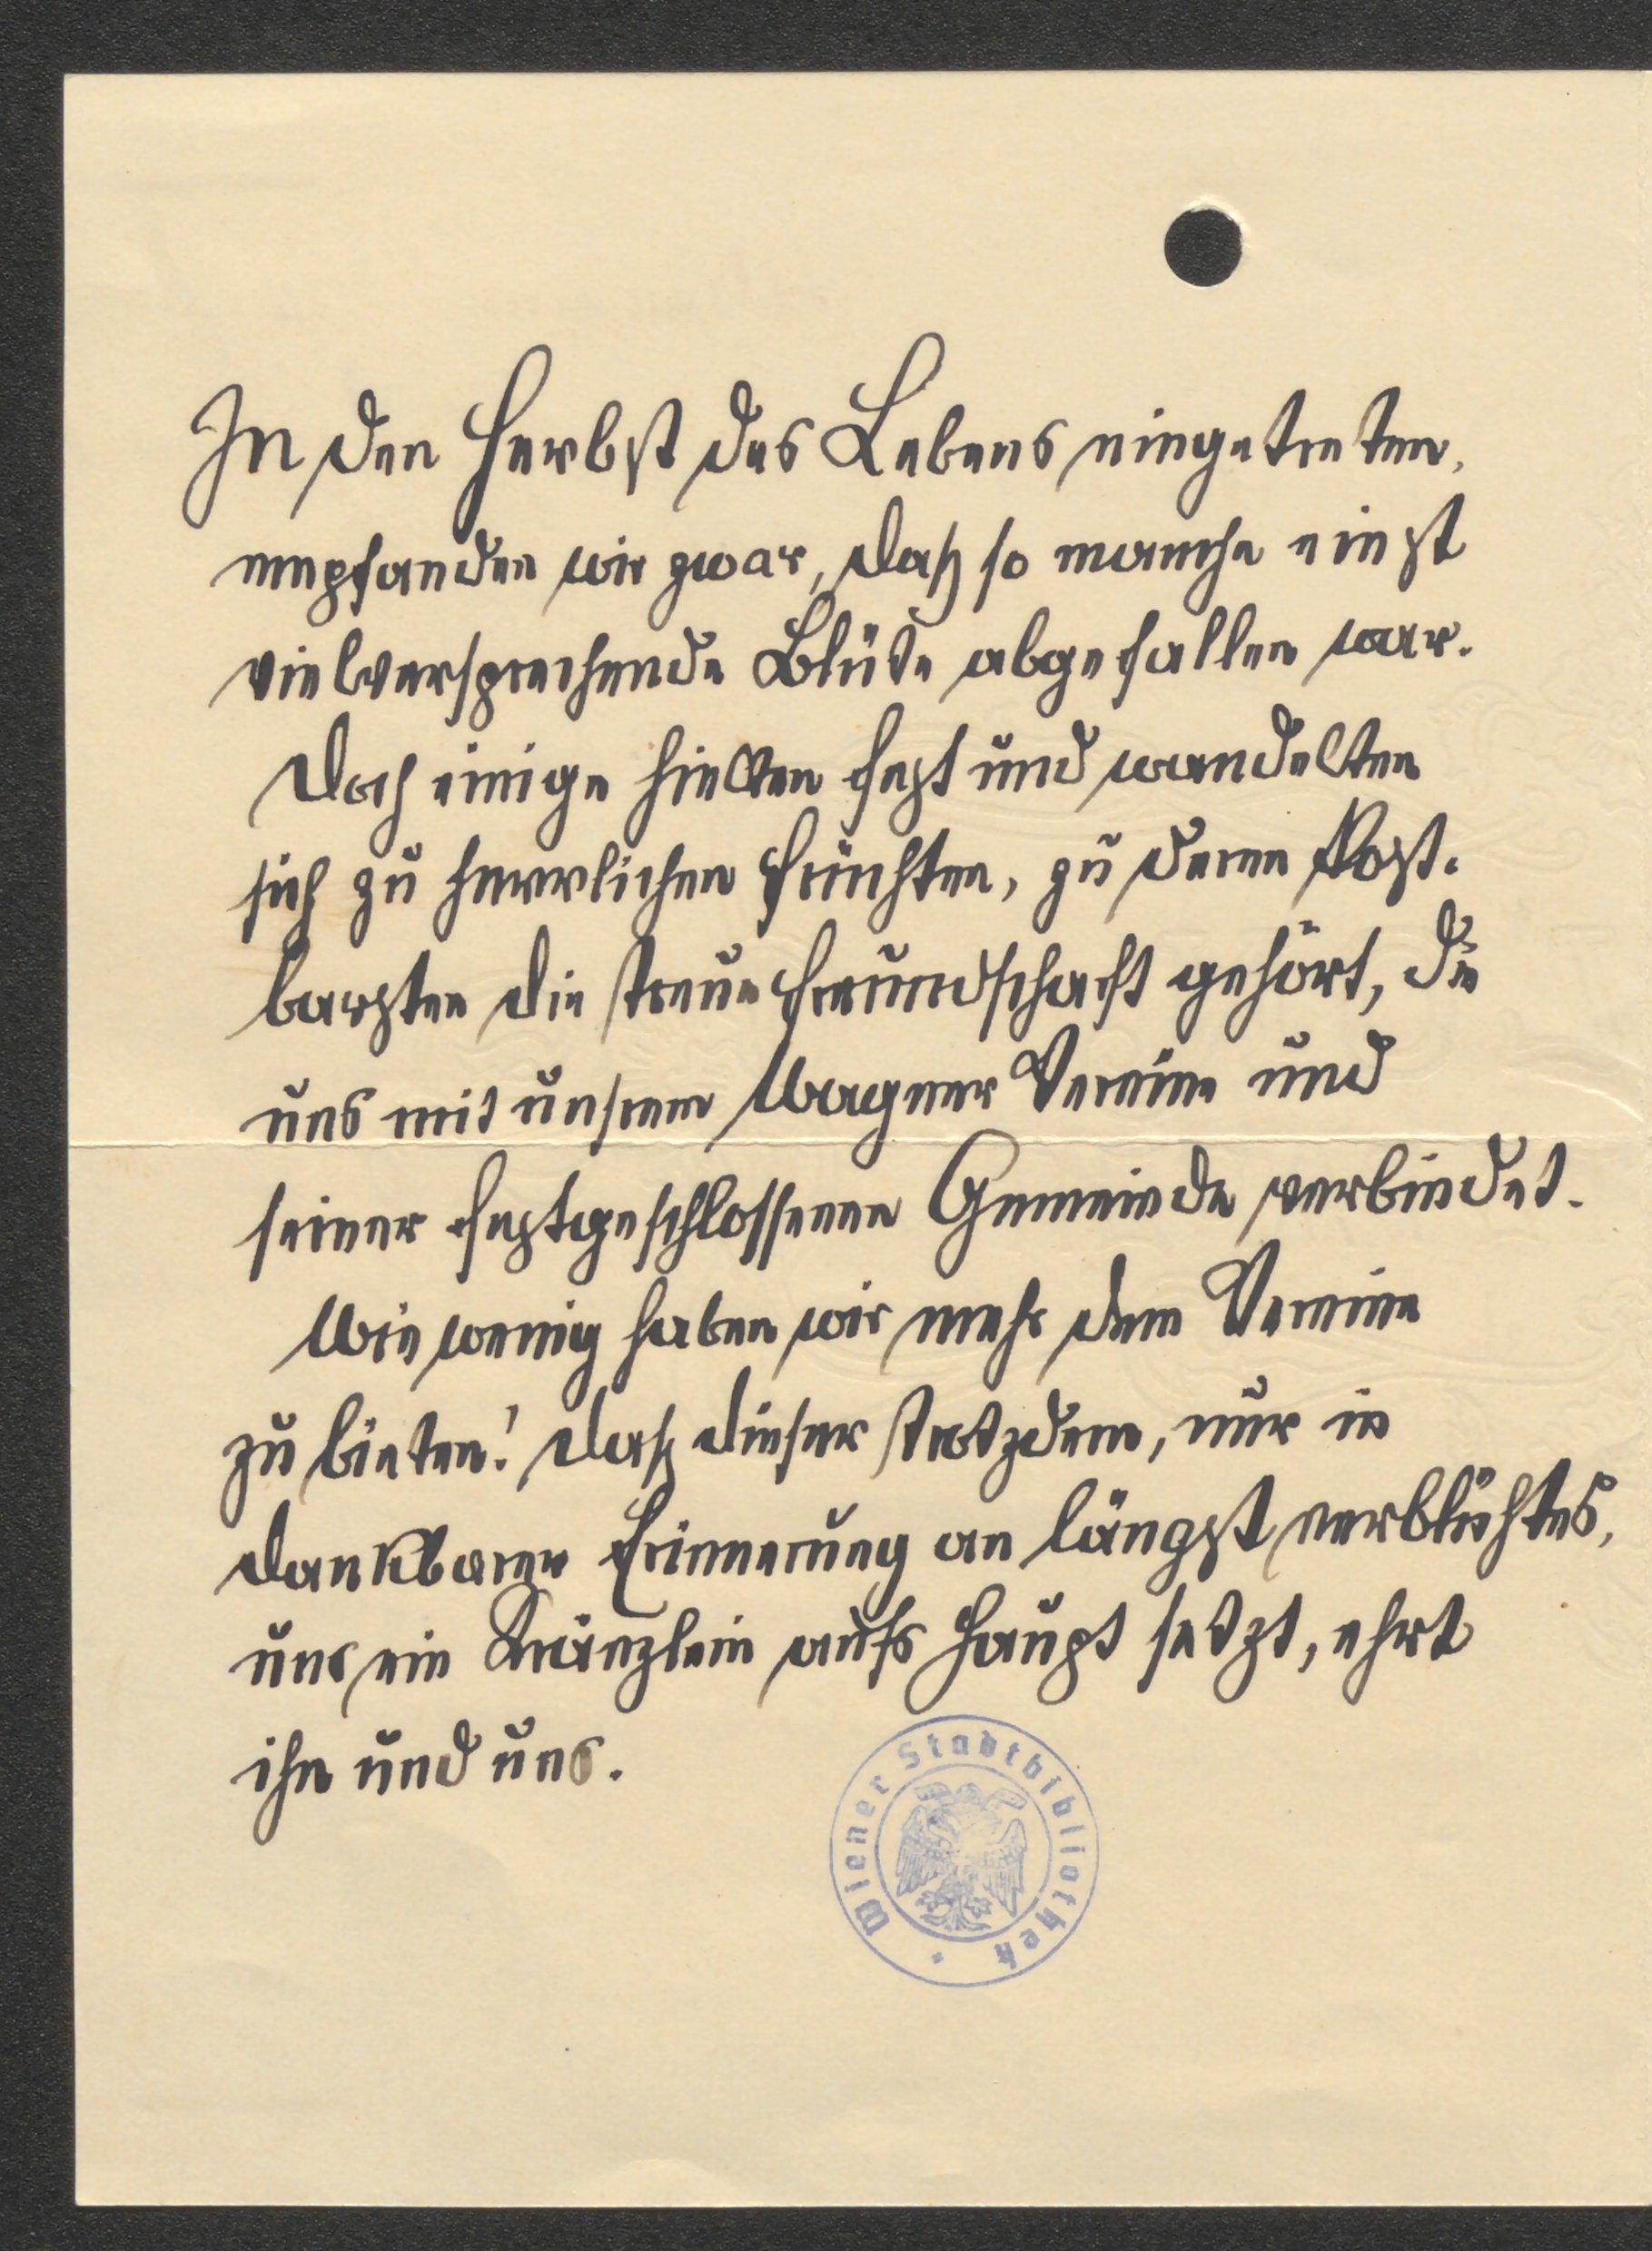 In den Herbst des Lebens eingetreten,
empfanden wir zwar, daß so manche einst
vielversprechende Blüte abgefallen war.
Doch einige hielten fest und wandelten
sich zu herrlichen Früchten, zu deren Kost-
barsten die treue Freundschaft gehört, die
uns mit unsrem Wagner Vereine und
seiner festgeschlossenen Gemeinde verbindet.
Wie wenig haben wir mehr dem Vereine
zu bieten! Daß dieser trotzdem, nur in
dankbarer Erinnerung an längst verblühtes,
uns ein Kränzlein aufs Haupt setzt, ehrt
ihn und uns.
Wiener Stadtbibliothek